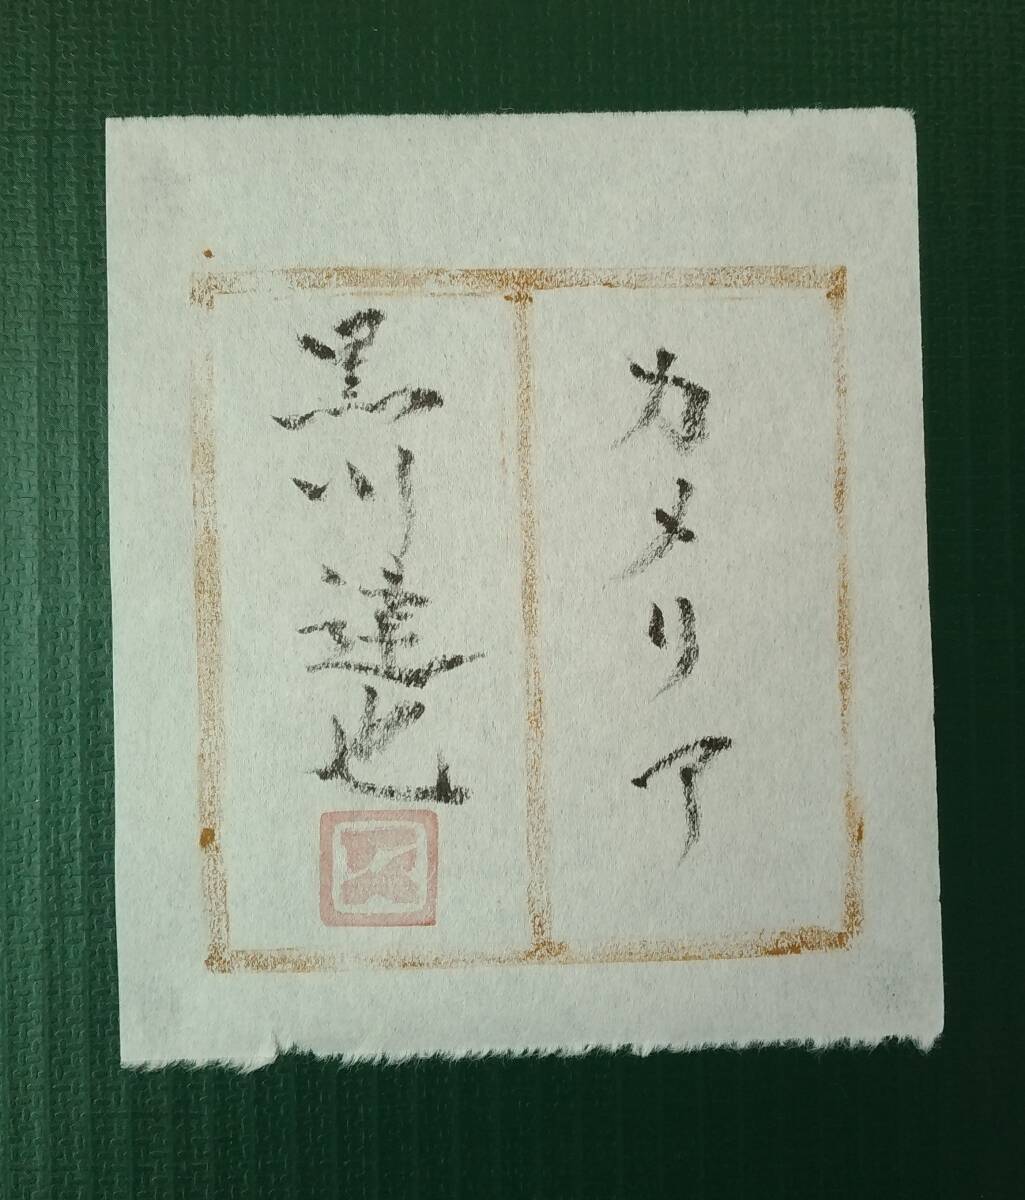 カメリア
黒川達也